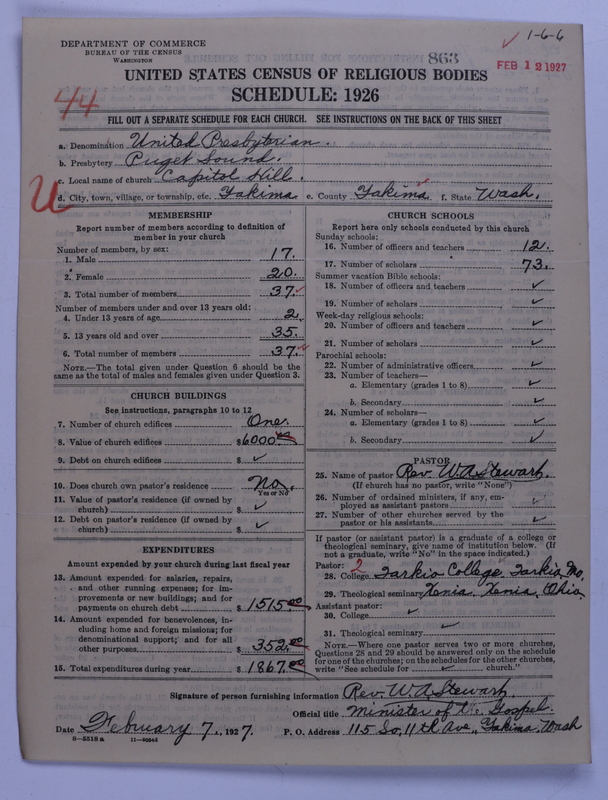 1-6-6
DEPARTMENT OF COMMERCE
BUREAU OF THE CENSUS
WASHINGTON
863
FEB 12 1927
UNITED STATES CENSUS OF RELIGIOUS BODIES
SCHEDULE: 1926
44
FILL OUT A SEPARATE SCHEDULE FOR EACH CHURCH. SEE INSTRUCTIONS ON THE BACK OF THIS SHEET
a. Denomination United Presbyterian.
b. Presbytery Puget Sound.
c. Local name of church Capitol Hill.
U
d. City, town, village, or township, etc. Yakima e. County Yakima f. State Wash.
MEMBERSHIP
Report number of members according to definition of member in your church
Number of members, by sex:
1. Male 17.
2. Female 20.
3. Total number of members 37.
Number of members under and over 13 years old:
4. Under 13 years of age 2
5. 13 years old and over 35.
6. Total number of members 37.
NOTE.—The total given under Question 6 should be the same as the total of males and females given under Question 3.
CHURCH BUILDINGS
See instructions, paragraphs 10 to 12
7. Number of church edifices One.
8. Value of church edifices $6000.00
9. Debt on church edifices $ ✓
10. Does church own pastor's residence No.
Yes or No
11. Value of pastor's residence (if owned by church) $ ✓
12. Debt on pastor's residence (if owned by church) $ ✓
EXPENDITURES
Amount expended by your church during last fiscal year
13. Amount expended for salaries, repairs, and other running expenses; for improvements or new buildings; and for payments on church debt $ 1515.00
14. Amount expended for benevolences, including home and foreign missions; for denominational support; and for all other purposes $ 352.00
15. Total expenditures during year $ 1867.00
CHURCH SCHOOLS
Report here only schools conducted by this church
Sunday schools:
16. Number of officers and teachers 12.
17. Number of scholars 73.
Summer vacation Bible schools:
18. Number of officers and teachers ✓
19. Number of scholars ✓
Week-day religious schools:
20. Number of officers and teachers ✓
21. Number of scholars ✓
Parochial schools:
22. Number of administrative officers ✓
23. Number of teachers—
a. Elementary (grades 1 to 8) ✓
b. Secondary ✓
24. Number of scholars—
a. Elementary (grades 1 to 8) ✓
b. Secondary ✓
PASTOR
25. Name of pastor Rev. W. A Stewart.
(If church has no pastor, write "None")
26. Number of ordained ministers, if any, employed as assistant pastors ✓
27. Number of other churches served by the pastor or his assistants ✓
If pastor (or assistant pastor) is a graduate of a college or theological seminary, give name of institution below. (If not a graduate, write "No" in the space indicated.)
Pastor: 2
28. College Tarkio College, Tarkio, Mo.
29. Theological seminary Xenia, Xenia, Ohio.
Assistant pastor:
30. College ✓
31. Theological seminary ✓
NOTE.—Where one pastor serves two or more churches, Questions 28 and 29 should be answered only on the schedule for one of the churches; on the schedules for the other churches, write "See schedule for ✓ church."
Signature of person furnishing information Rev. W. A. Stewart
Official title Minister of the Gospel.
Date February 7., 1927.
P. O. Address 115 So, 11th Ave, Yakima, Wash
8—5518 a